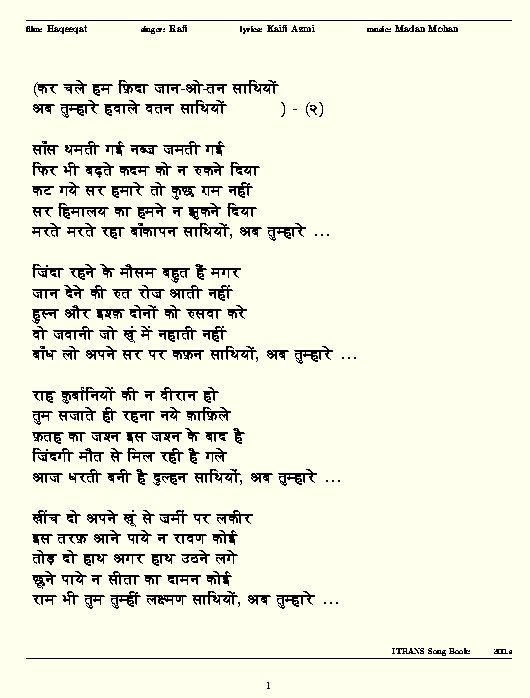 film: Haqeeqat singer: Rafi lyrics: Kaifi Azmi music: Madan Mohan
(कर चले हम फ़िदा जान-ओ-तन साथियों
अब तुम्हारे हवाले वतन साथियों ) - (२)
साँस थमती गई नब्ज जमती गई
फिर भी बढ़ते कदम को न रुकने दिया
कट गये सर हमारे तो कुछ ग़म नहीं
सर हिमालय का हमने न झुकने दिया
मरते मरते रहा बाँकापन साथियों, अब तुम्हारे ...
जिंदा रहने के मौसम बहुत हैं मगर
जान देने की रुत रोज आती नहीं
हुस्न और इश्क़ दोनों को रुसवा करे
वो जवानी जो खूं में नहाती नहीं
बाँध लो अपने सर पर कफ़न साथियों, अब तुम्हारे ...
राह क़ुर्बानियों की न वीरान हो
तुम सजाते ही रहना नये क़ाफ़िले
फ़तह का जश्न इस जश्न के बाद है
जिंदगी मौत से मिल रही है गले
आज धरती बनी है दुल्हन साथियों, अब तुम्हारे ...
खींच दो अपने खूं से जमीं पर लकीर
इस तरफ़ आने पाये न रावण कोई
तोड़ दो हाथ अगर हाथ उठने लगे
छूने पाये न सीता का दामन कोई
राम भी तुम तुम्हीं लक्ष्मण साथियों, अब तुम्हारे ...
ITRANS Song Book:
1